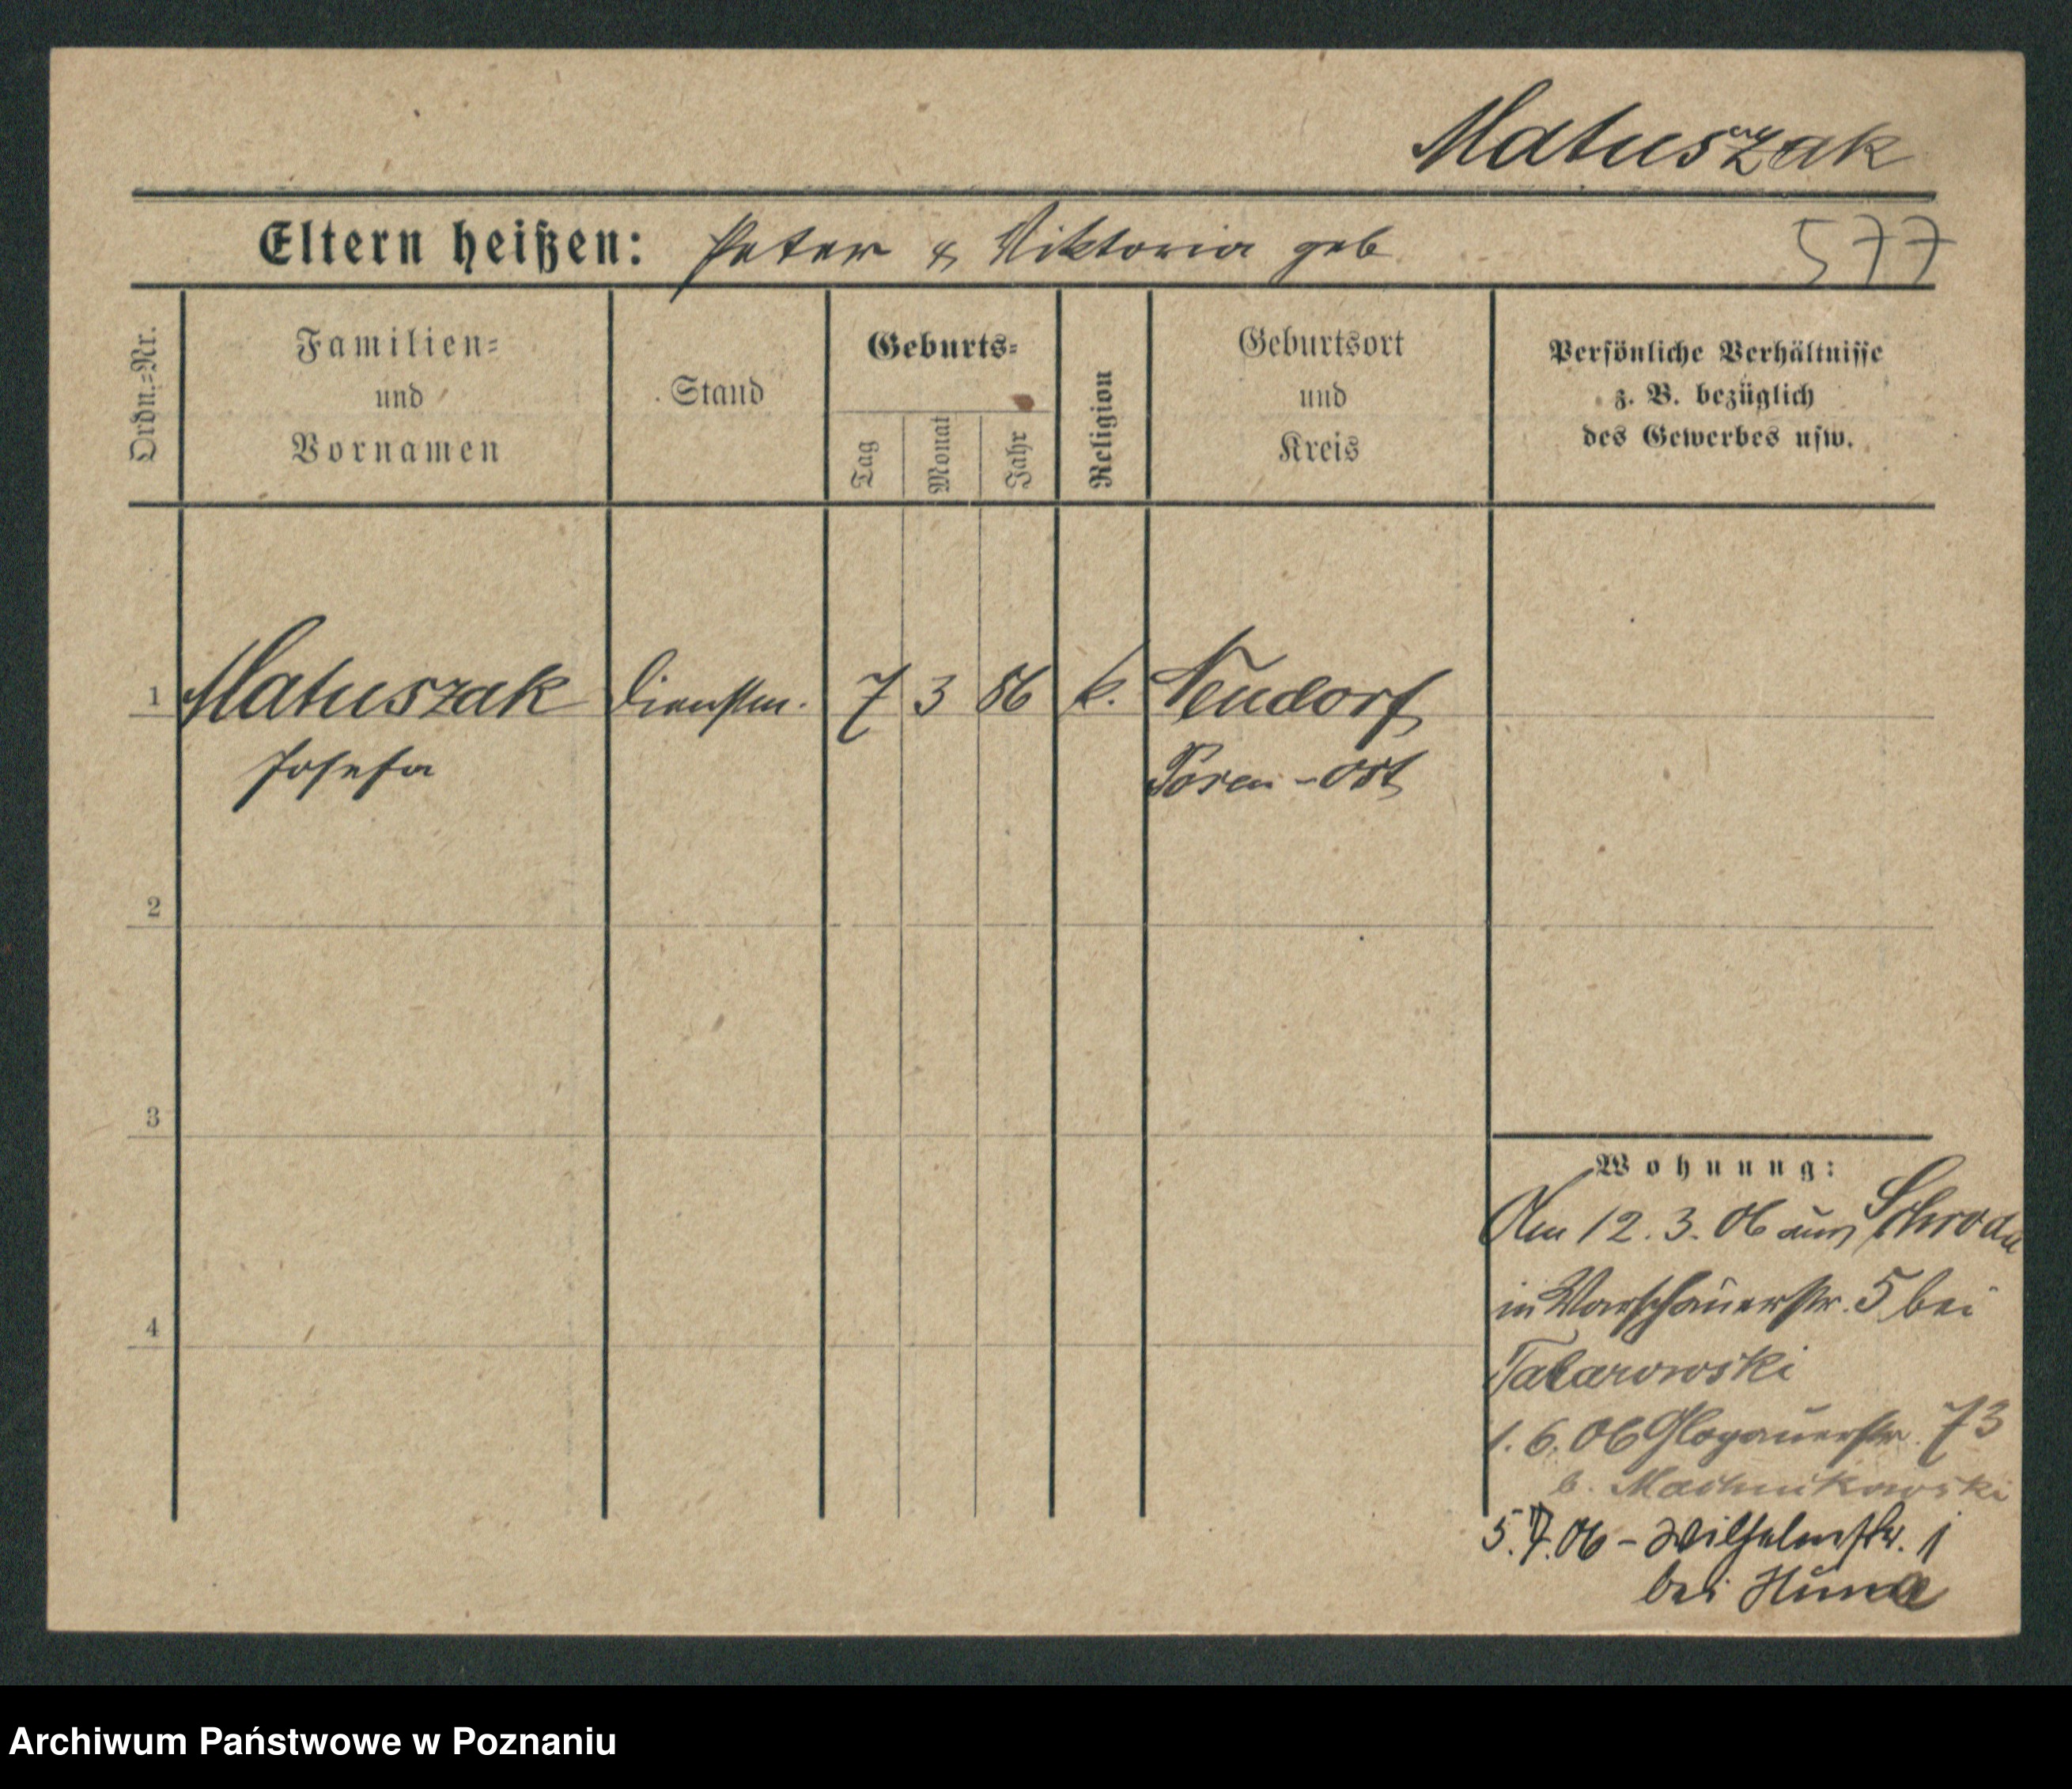 Matuszak
Eltern heißen: Peter & Viktoria geb
577
Ordn.-Nr.
Familien-
und
Vornamen
Stand
Geburts-
Tag
Monat
Jahr
Religion
Geburtsort
und
Kreis
Persönliche Verhältnisse
z. B. bezüglich
des Gewerbes usw.
1 Matuszak Dienstm. 7 3 86 k. Neudorf
Josefa Posen-Ost
2
3
4
Wohnung:
Am 12.3.06 aus Schroda
in Warschauerstr. 5 bei
Tatarowski
1.6.06 Glogauerstr. 73
b. Machnikowski
5.7.06 - Wilhelmstr. 1
bei
Archiwum Państwowe w Poznaniu